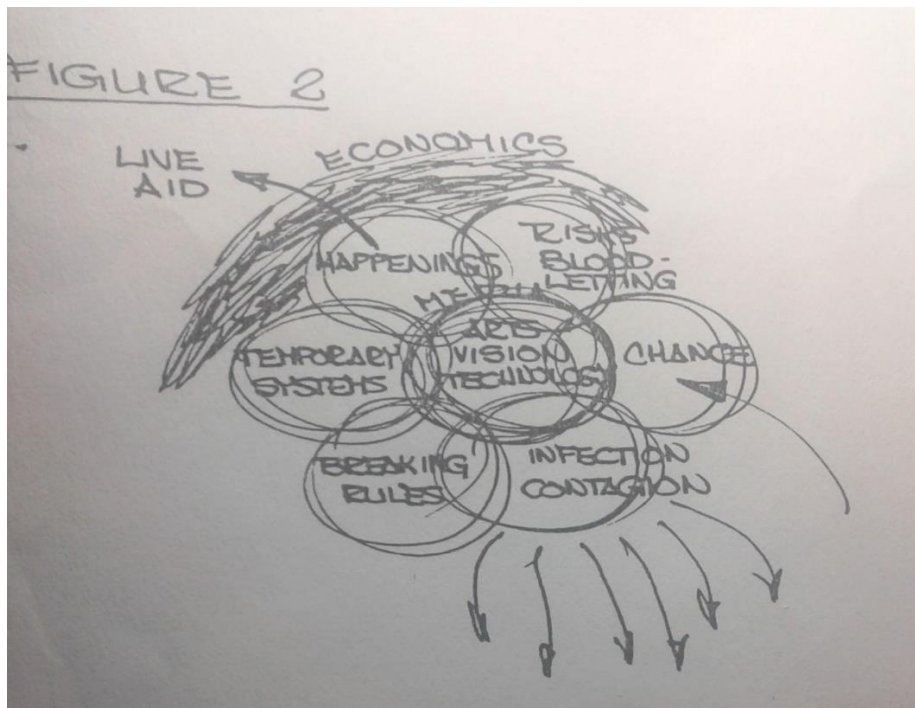 FIGURE 2
LIVE
AID
ECONOMICS
HAPPENINGS
RISKS
BLOOD-
LETTING
MEDIA
ARTS
VISION
TECHNOLOGY
TEMPORARY
SYSTEMS
CHANGE
BREAKING
RULES
INFECTION
CONTAGION